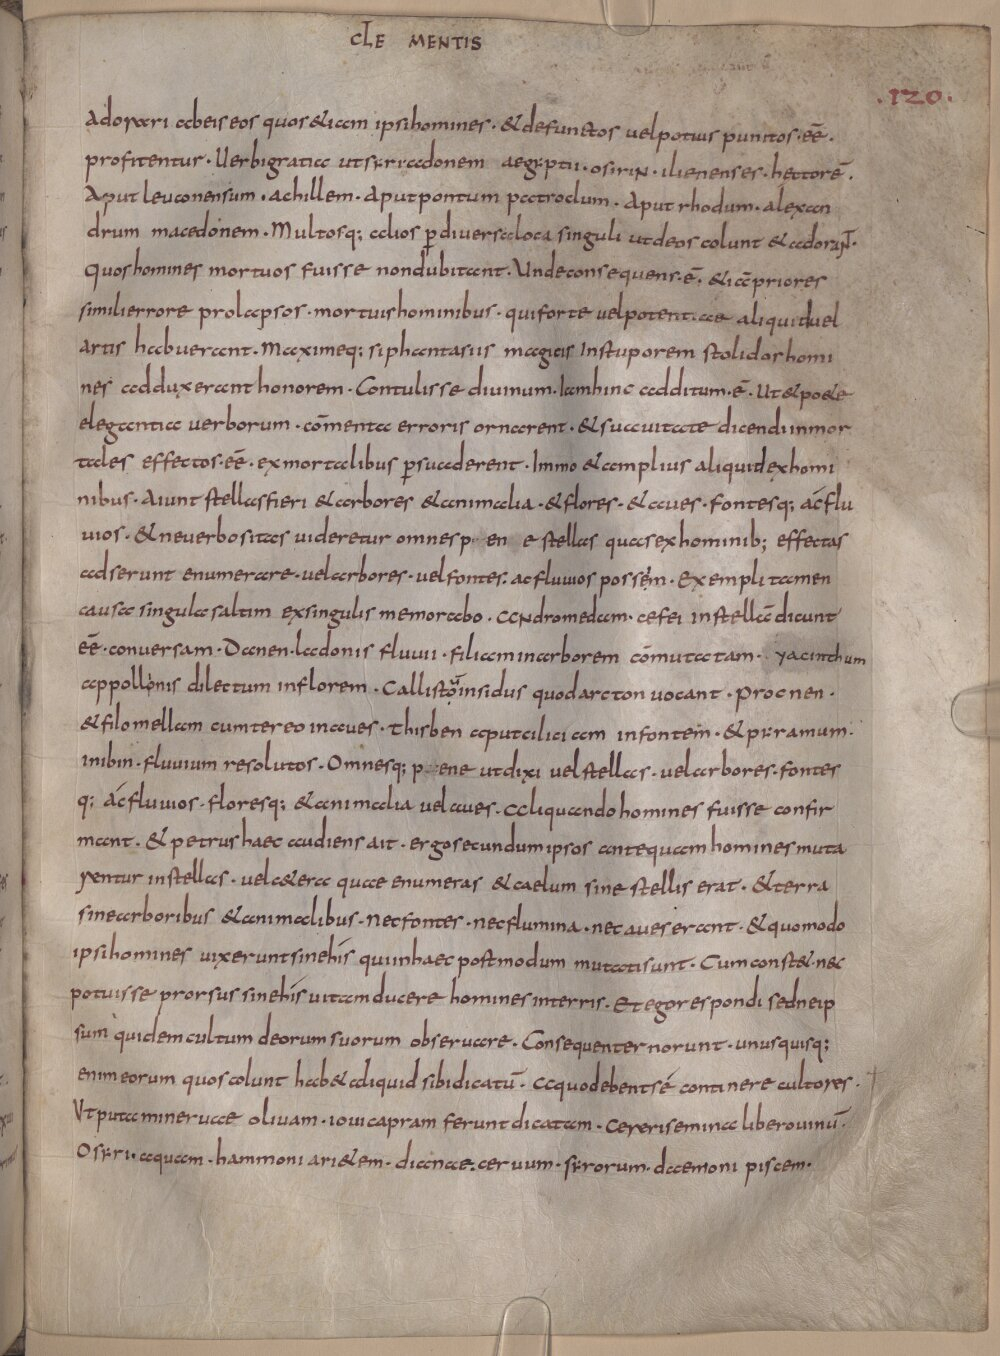 CLE MENTIS
.120.
adorari ab eis eos quos & iam ipsi homines · & defunctos vel potius punitos · eē ·
profitentur · Uerbi gratia ut syri adonem aegyptii · osirin · ilienenses · hectorē ·
Aput leuconensum · achillem · aput pontum patroclum · Aput rhodum · alexan
drum macedonem · Multosq; alios p̱ diversa loca singuli ut deos colunt & adorant ·
Quos homines mortuos fuisse non dubitant · Unde consequens · ē · & iā priores
simili errore prolapsos · mortuis hominibus · qui forte vel potentiae aliquid vel
artis habuerant · Maximeq; si phantasiis magicis In stuporem stolidos homi
nes adduxerant honorem · Contulisse divinum · Iam hinc additum · ē · Ut & po&e
elegantia verborum · cōmenta erroris ornarent · & suavitate dicendi inmor
tales effectos · eē · ex mortalibus p̱suaderent · Immo & amplius aliquid ex homi
nibus · Aiunt stellas fieri & arbores & animalia · & flores · & aves · fontesq; ac flu
vios · & ne verbositas videretur omnes p en e stellas quas ex hominib; effectas
adserunt enumerare · vel arbores · vel fontes · ac fluvios possem · Exempli tamen
causa singula saltim ex singulis memorabo · Andromedam · cefei in stellā dicunt
eē · conversam · Danen · ladonis fluvii · filiam in arborem cōmutatam · yacinthum
appollonis dilectum in florem · Callisto in sidus quod arcton vocant · Procnen ·
& filomellam cum tereo in aves · Thisben aput ciliciam in fontem · & pyramum ·
inibin · fluvium resolutos · Omnesq; p ene ut dixi vel stellas · vel arbores · fontes
q; ac fluvios · floresq; & animalia vel aves · Aliquando homines fuisse confir
mant · & petrus haec audiens ait · ergo secundum ipsos antequam homines muta
rentur in stellas · vel c&era quae enumeras & caelum sine stellis erat · & terra
sine arboribus & animalibus · nec fontes · nec flumina · nec aves erant · & quomodo
ipsi homines vixerunt sine his qui in haec postmodum mutati sunt · Cum constet · nec
potuisse prorsus sine his vitam ducere homines in terris · Et ego respondi sed ne ip
sum quidem cultum deorum suorum observare · Consequenter norunt · unusquisq;
enim eorum quos colunt hab& aliquid sibi dicatū · A quo debent se continere cultores ·
Ut puta minervae olivam · iovi capram ferunt dicatam · Cereri semina libero vinū ·
Osyri · aquam · hammoni ari&em · dianae · cervum · syrorum · daemoni piscem ·